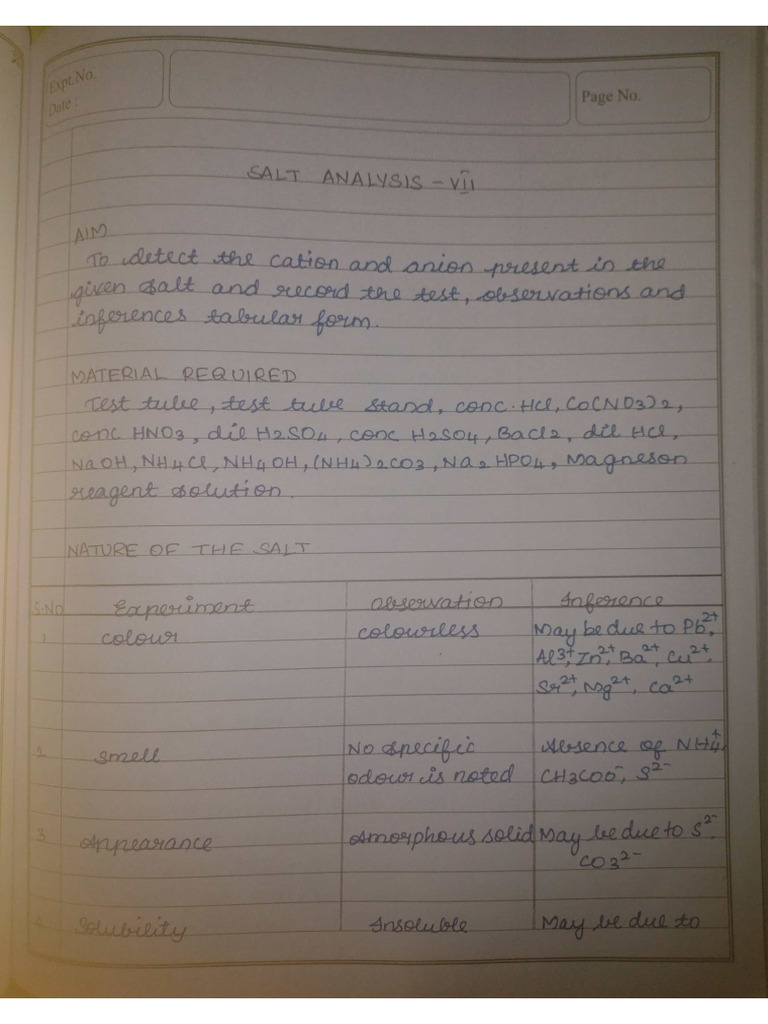 Expt.No.
Date :
Page No.
SALT ANALYSIS - VII
AIM
To detect the cation and anion present in the
given salt and record the test, observations and
inferences tabular form.
MATERIAL REQUIRED
Test tube, test tube stand, conc. HCl, Co(NO3)2,
conc HNO3, dil H2SO4, conc H2SO4, BaCl2, dil HCl,
NaOH, NH4Cl, NH4OH, (NH4)2CO3, Na2HPO4, Magneson
reagent solution.
NATURE OF THE SALT
S.NO Experiment Observation Inference
1 colour colourless May be due to Pb2+,
Al3+, Zn2+, Ba2+, Cu2+,
Sr2+, Mg2+, Ca2+
2 Smell No specific Absence of NH4+,
odour is noted CH3COO-, S2-
3 Appearance Amorphous solid May be due to S2-,
CO32-
4 Solubility Insoluble May be due to